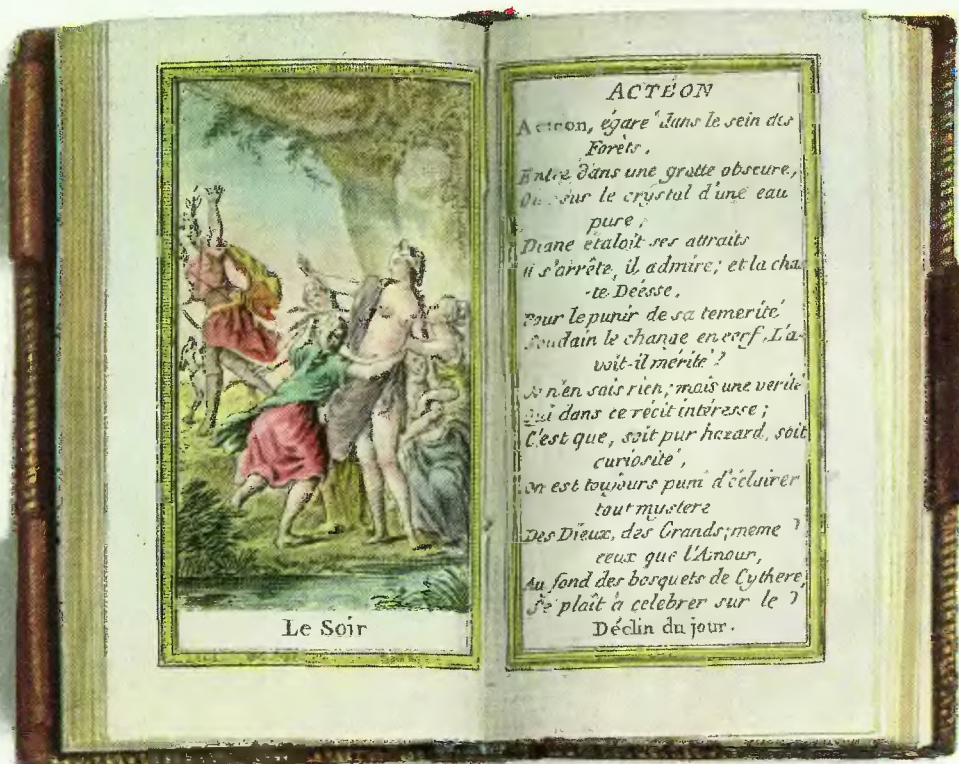 Le Soir
ACTÉON
Acteon, égaré dans le sein des
Forêts,
Entre dans une grotte obscure,
Où sur le crystal d'une eau
pure,
Diane étaloit ses attraits
Il s'arrête, il admire; et la chas
-te Déesse,
Pour le punir de sa temerité
Soudain le change en cerf. L'a-
voit-il mérité?
Je n'en sais rien; mais une verité
Qui dans ce récit intéresse;
C'est que, soit pur hazard, soit
curiosité,
On est toujours puni d'éclairer
tout mystere
Des Dieux, des Grands; meme
ceux que l'Amour,
Au fond des bosquets de Cythere,
Se plaît à celebrer sur le
Déclin du jour.